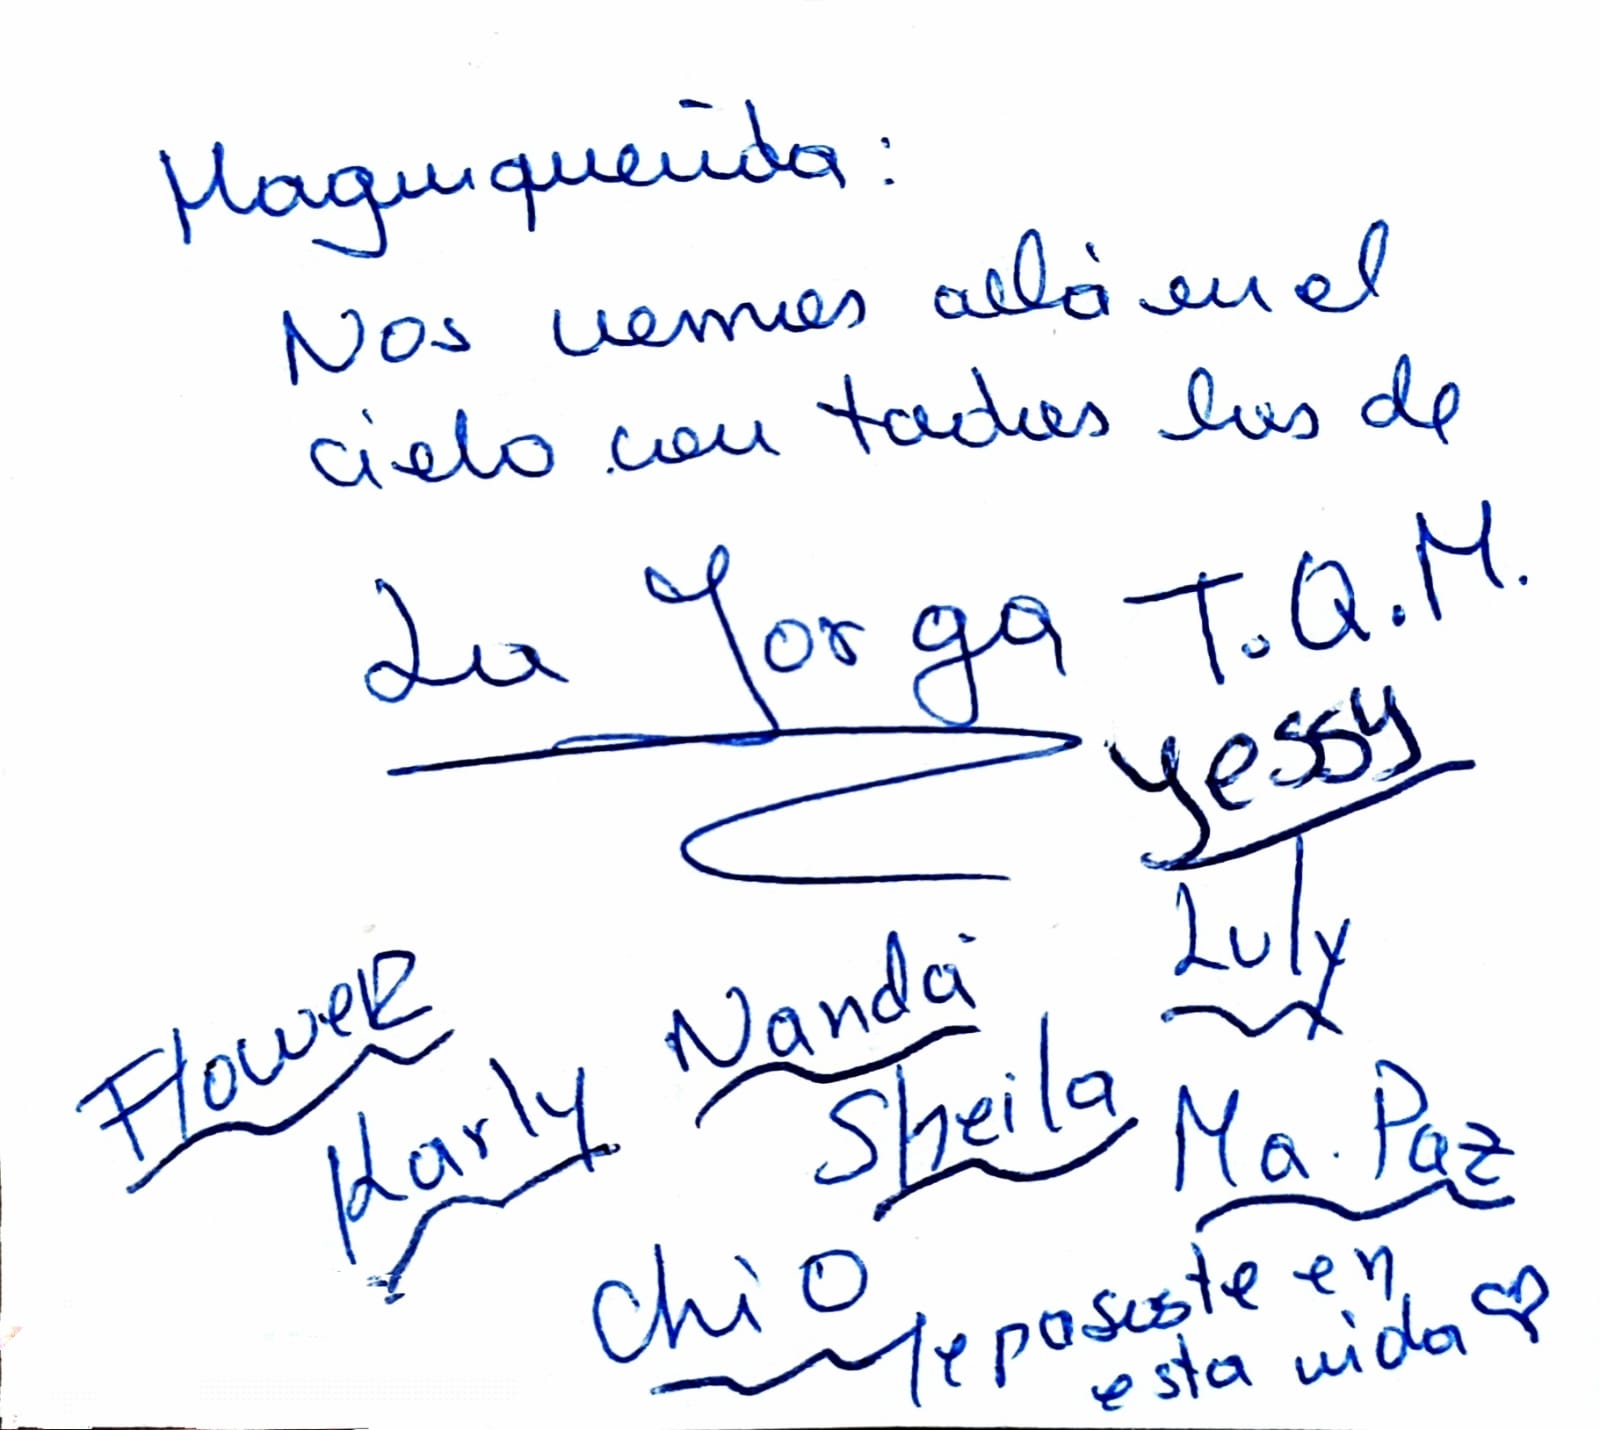 Maguiquerida:
Nos vemos allá en el
cielo con todas las de
La Jorga T.Q.M.
Yessy
Luly
Flower
Nanda
Karly
Sheila
Ma. Paz
Chio
Te pasaste en
esta vida ♡